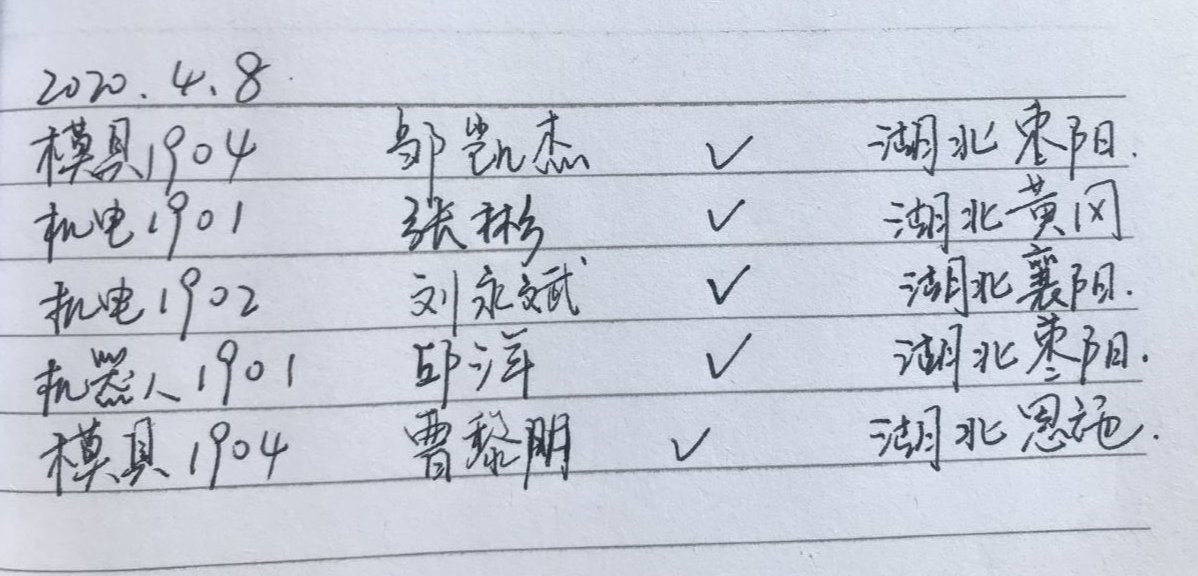 2020.4.8.
模具1904 邬凯杰 ✓ 湖北枣阳.
机电1901 张彬 ✓ 湖北黄冈
机电1902 刘永斌 ✓ 湖北襄阳.
机器人1901 邱洋 ✓ 湖北枣阳.
模具1904 曹黎明 ✓ 湖北恩施.